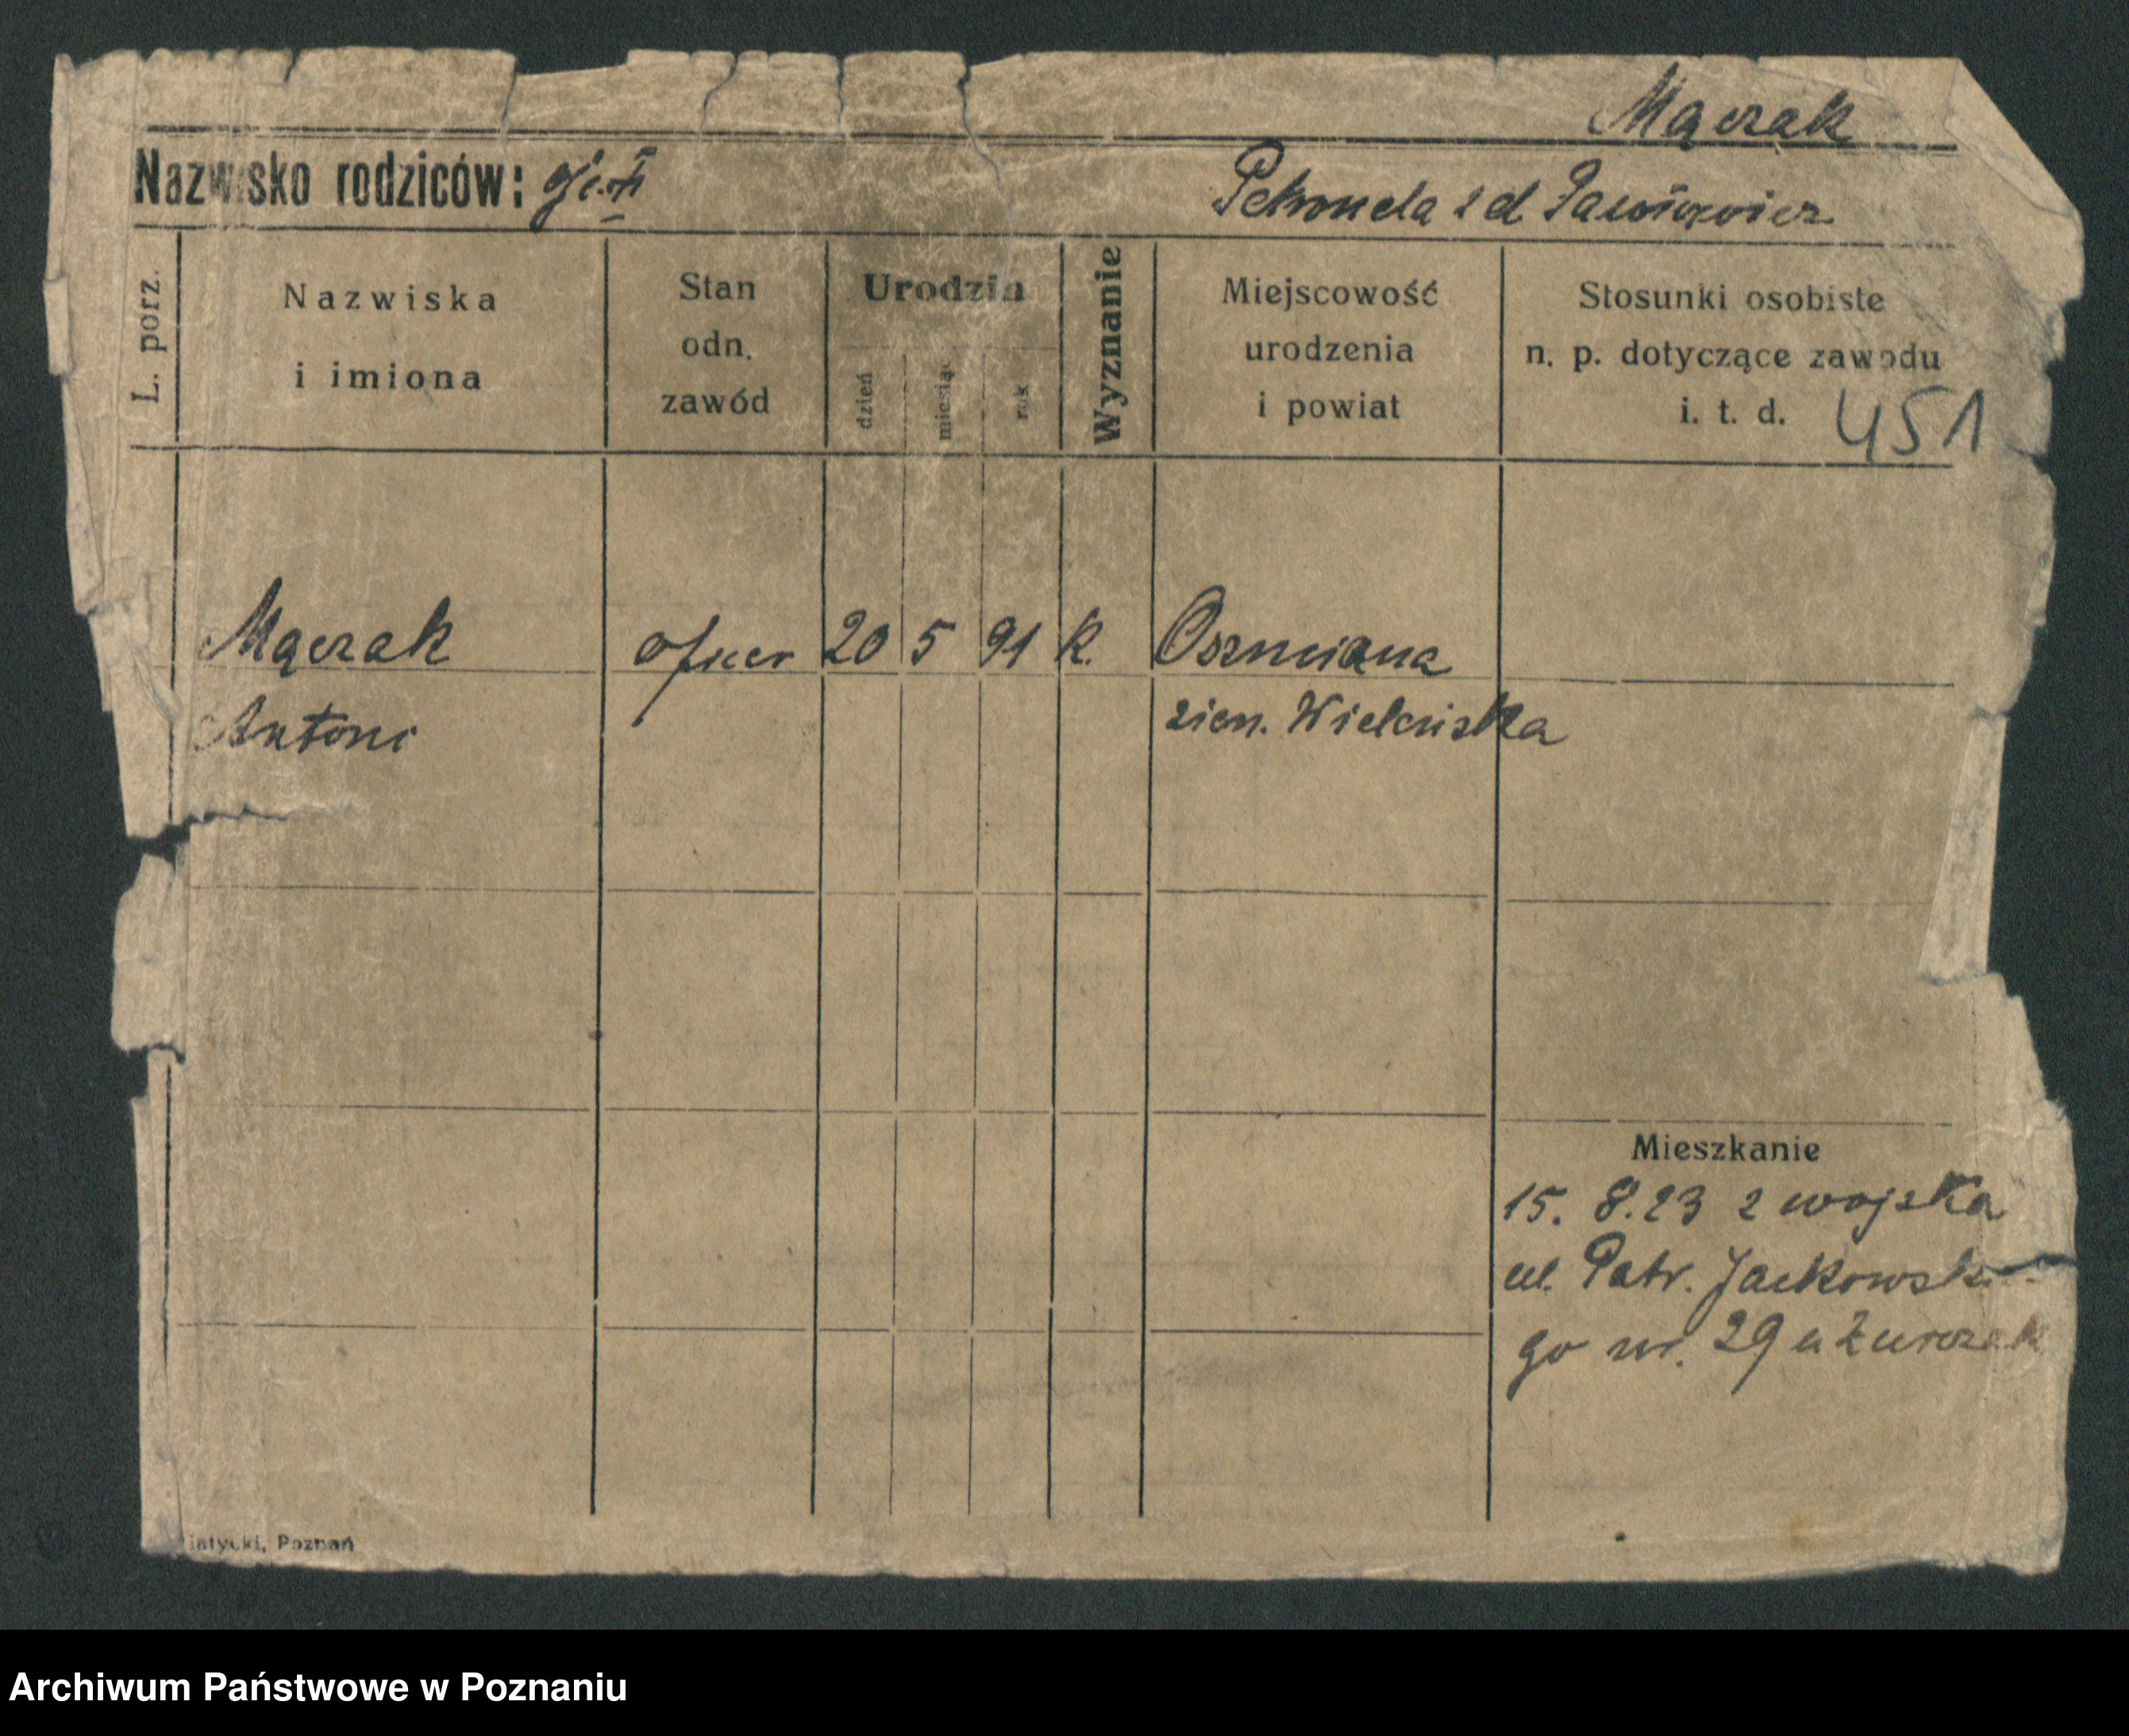 Mączak
Nazwisko rodziców:
Petronela z d
L. porz.
Nazwiska
i imiona
Stan
odn.
zawód
Urodzin
dzień
miesiąc
rok
Wyznanie
Miejscowość
urodzenia
i powiat
Stosunki osobiste
n. p. dotyczące zawodu
i. t. d.
451
Mączak
oficer
20
5
91
K.
Oszmiana
Antoni
ziem. Wileńska
Mieszkanie
15. 8. 23 z wojska
ul. Patr. Jackowskie-
go nr. 29 u
, Poznań
Archiwum Państwowe w Poznaniu